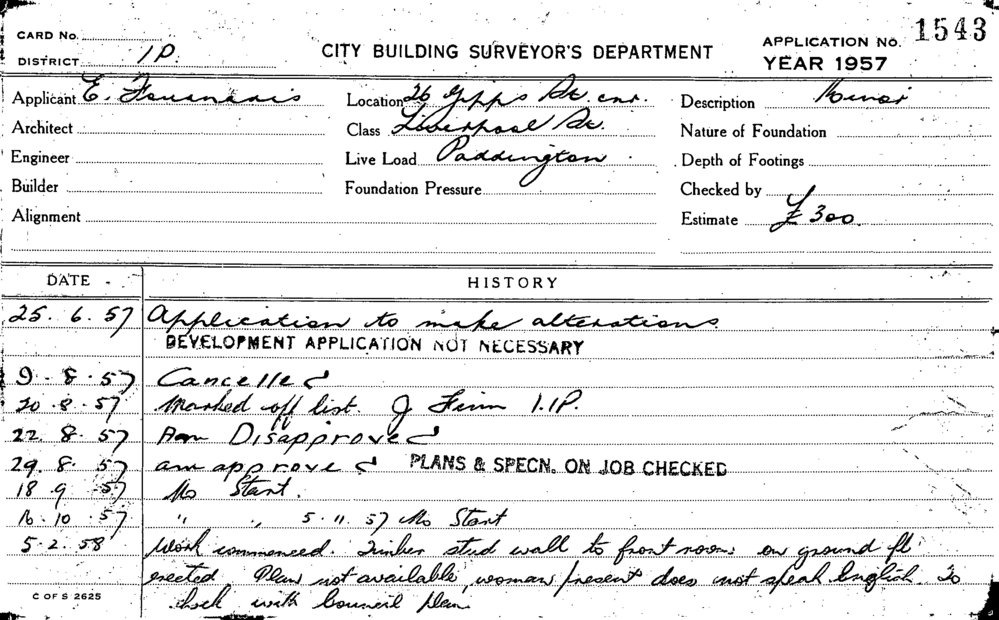 CARD No.
DISTRICT 1P.
CITY BUILDING SURVEYOR'S DEPARTMENT
APPLICATION No. 1543
YEAR 1957
Applicant E.
Location 26 Gipps St. cnr.
Description Minor
Architect
Class Liverpool St.
Nature of Foundation
Engineer
Live Load Paddington
Depth of Footings
Builder
Foundation Pressure
Checked by
Alignment
Estimate £300.
DATE HISTORY
25. 6. 57 Application to make alterations
DEVELOPMENT APPLICATION NOT NECESSARY
9. 8. 57 Cancelled
20. 8. 57 Marked off list. J 1.1P.
22. 8. 57 Disapproved
29. 8. 57 am approved PLANS & SPECN. ON JOB CHECKED
18. 9. 57 No Start.
16. 10. 57 " " 5. 11. 57 No Start
5. 2. 58 Work commenced. Timber stud wall to front room on ground fl
erected Plan not available, woman present does not speak English. To
check with Council plan
C OF S 2625